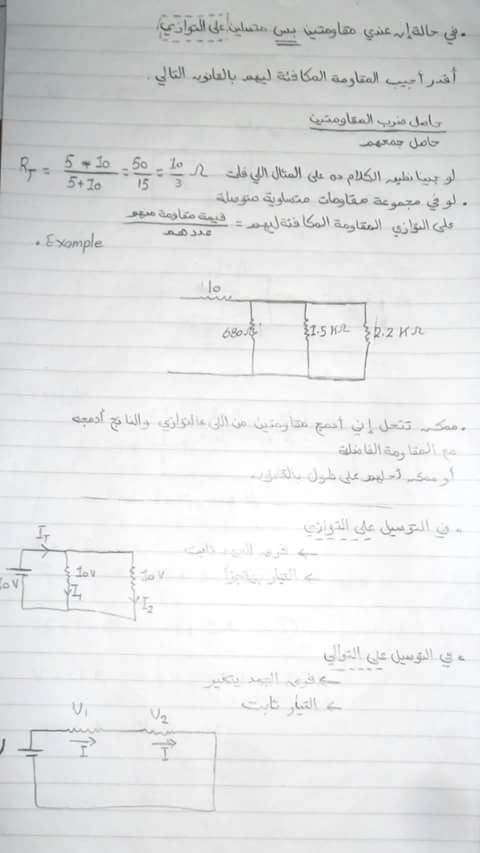 . في حالة إن عندي مقاومتين بس متصلين على التوازي
أقدر أجيب المقاومة المكافئة ليهم بالقانون التالي .
حاصل ضرب المقاومتين
حاصل جمعهم
لو جينا نطبق الكلام ده على المثال اللي فات
R_T = 5 * 10 / 5 + 10 = 50 / 15 = 10 / 3 Ω
. لو في مجموعة مقاومات متساوية متوصلة
على التوازي المقاومة المكافئة ليهم = قيمة مقاومة منهم / عددهم
. Example
10
680Ω 1.5 KΩ 2.2 KΩ
. ممكن تتحل إني أدمج مقاومتين من اللي عالتوازي والناتج أدمجه
مع المقاومة الفاضلة
أو ممكن أحلهم على طول بالقانون.
. في التوصيل على التوازي
← فرق الجهد ثابت
← التيار يتجزأ
I_T
10V 10V 10V
I_1 I_2
. في التوصيل على التوالي
← فرق الجهد يتغير
← التيار ثابت
V_1 V_2
I I
V